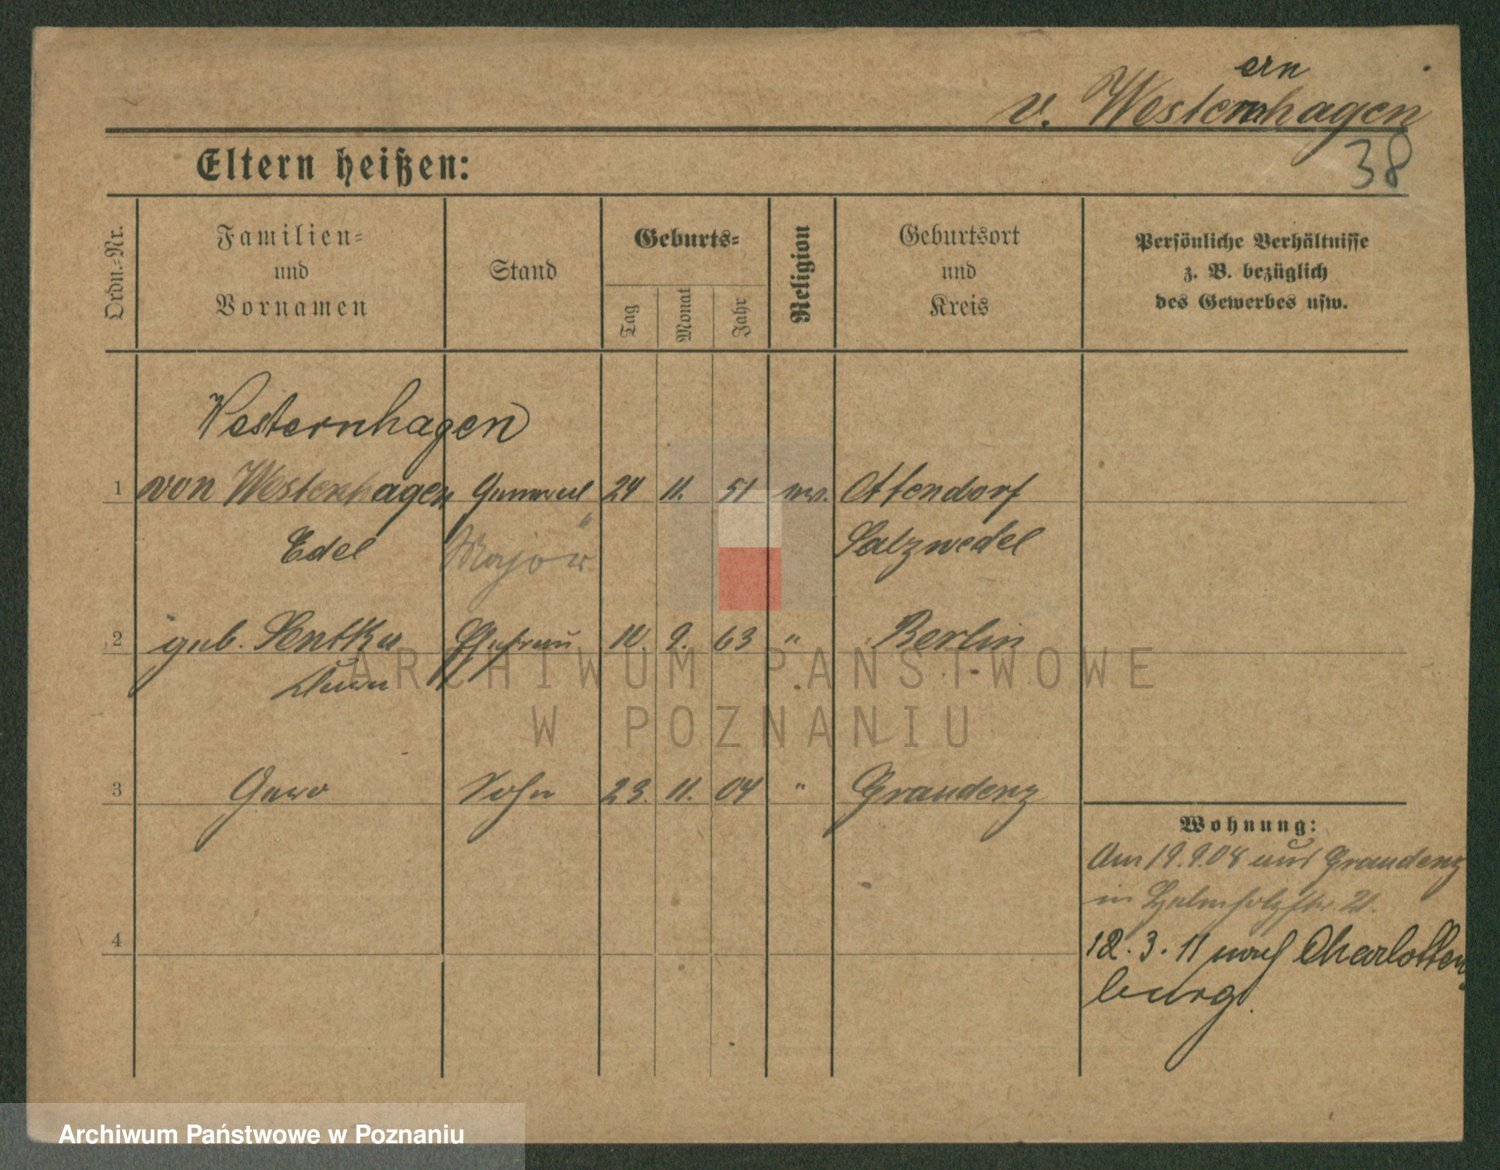 ern
v. Westernhagen
38
Eltern heißen:
Ordn.-Nr.
Familien-
und
Vornamen
Stand
Geburts-
Tag
Monat
Jahr
Religion
Geburtsort
und
Kreis
Persönliche Verhältnisse
z. B. bezüglich
des Gewerbes usw.
Westernhagen
1 von Westenhagen General 24 11. 51 ev. Ottendorf
Edel Major Salzwedel
2 geb. Ehefrau 10. 9. 63 " Berlin
3 Gero Sohn 23. 11. 04 " Graudenz
Wohnung:
Am 19.9.08 aus Graudenz
in
4
12.3.11 nach Charlotten-
burg.
ARCHIWUM PAŃSTWOWE
W POZNANIU
Archiwum Państwowe w Poznaniu